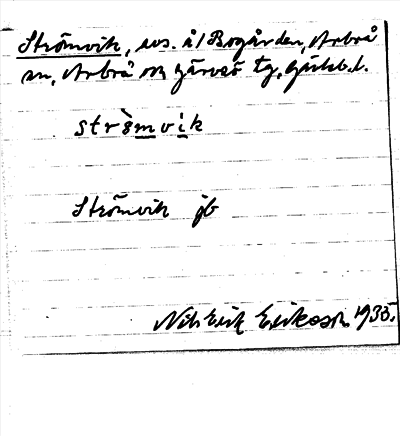 Strömvik, uvs. å/ Bogården, Arbrå
sn, Arbrå och Järvsö tg, Gävleb.l.
strö̀mvik
Strömvik jb
Nils Erik Eriksson 1935.